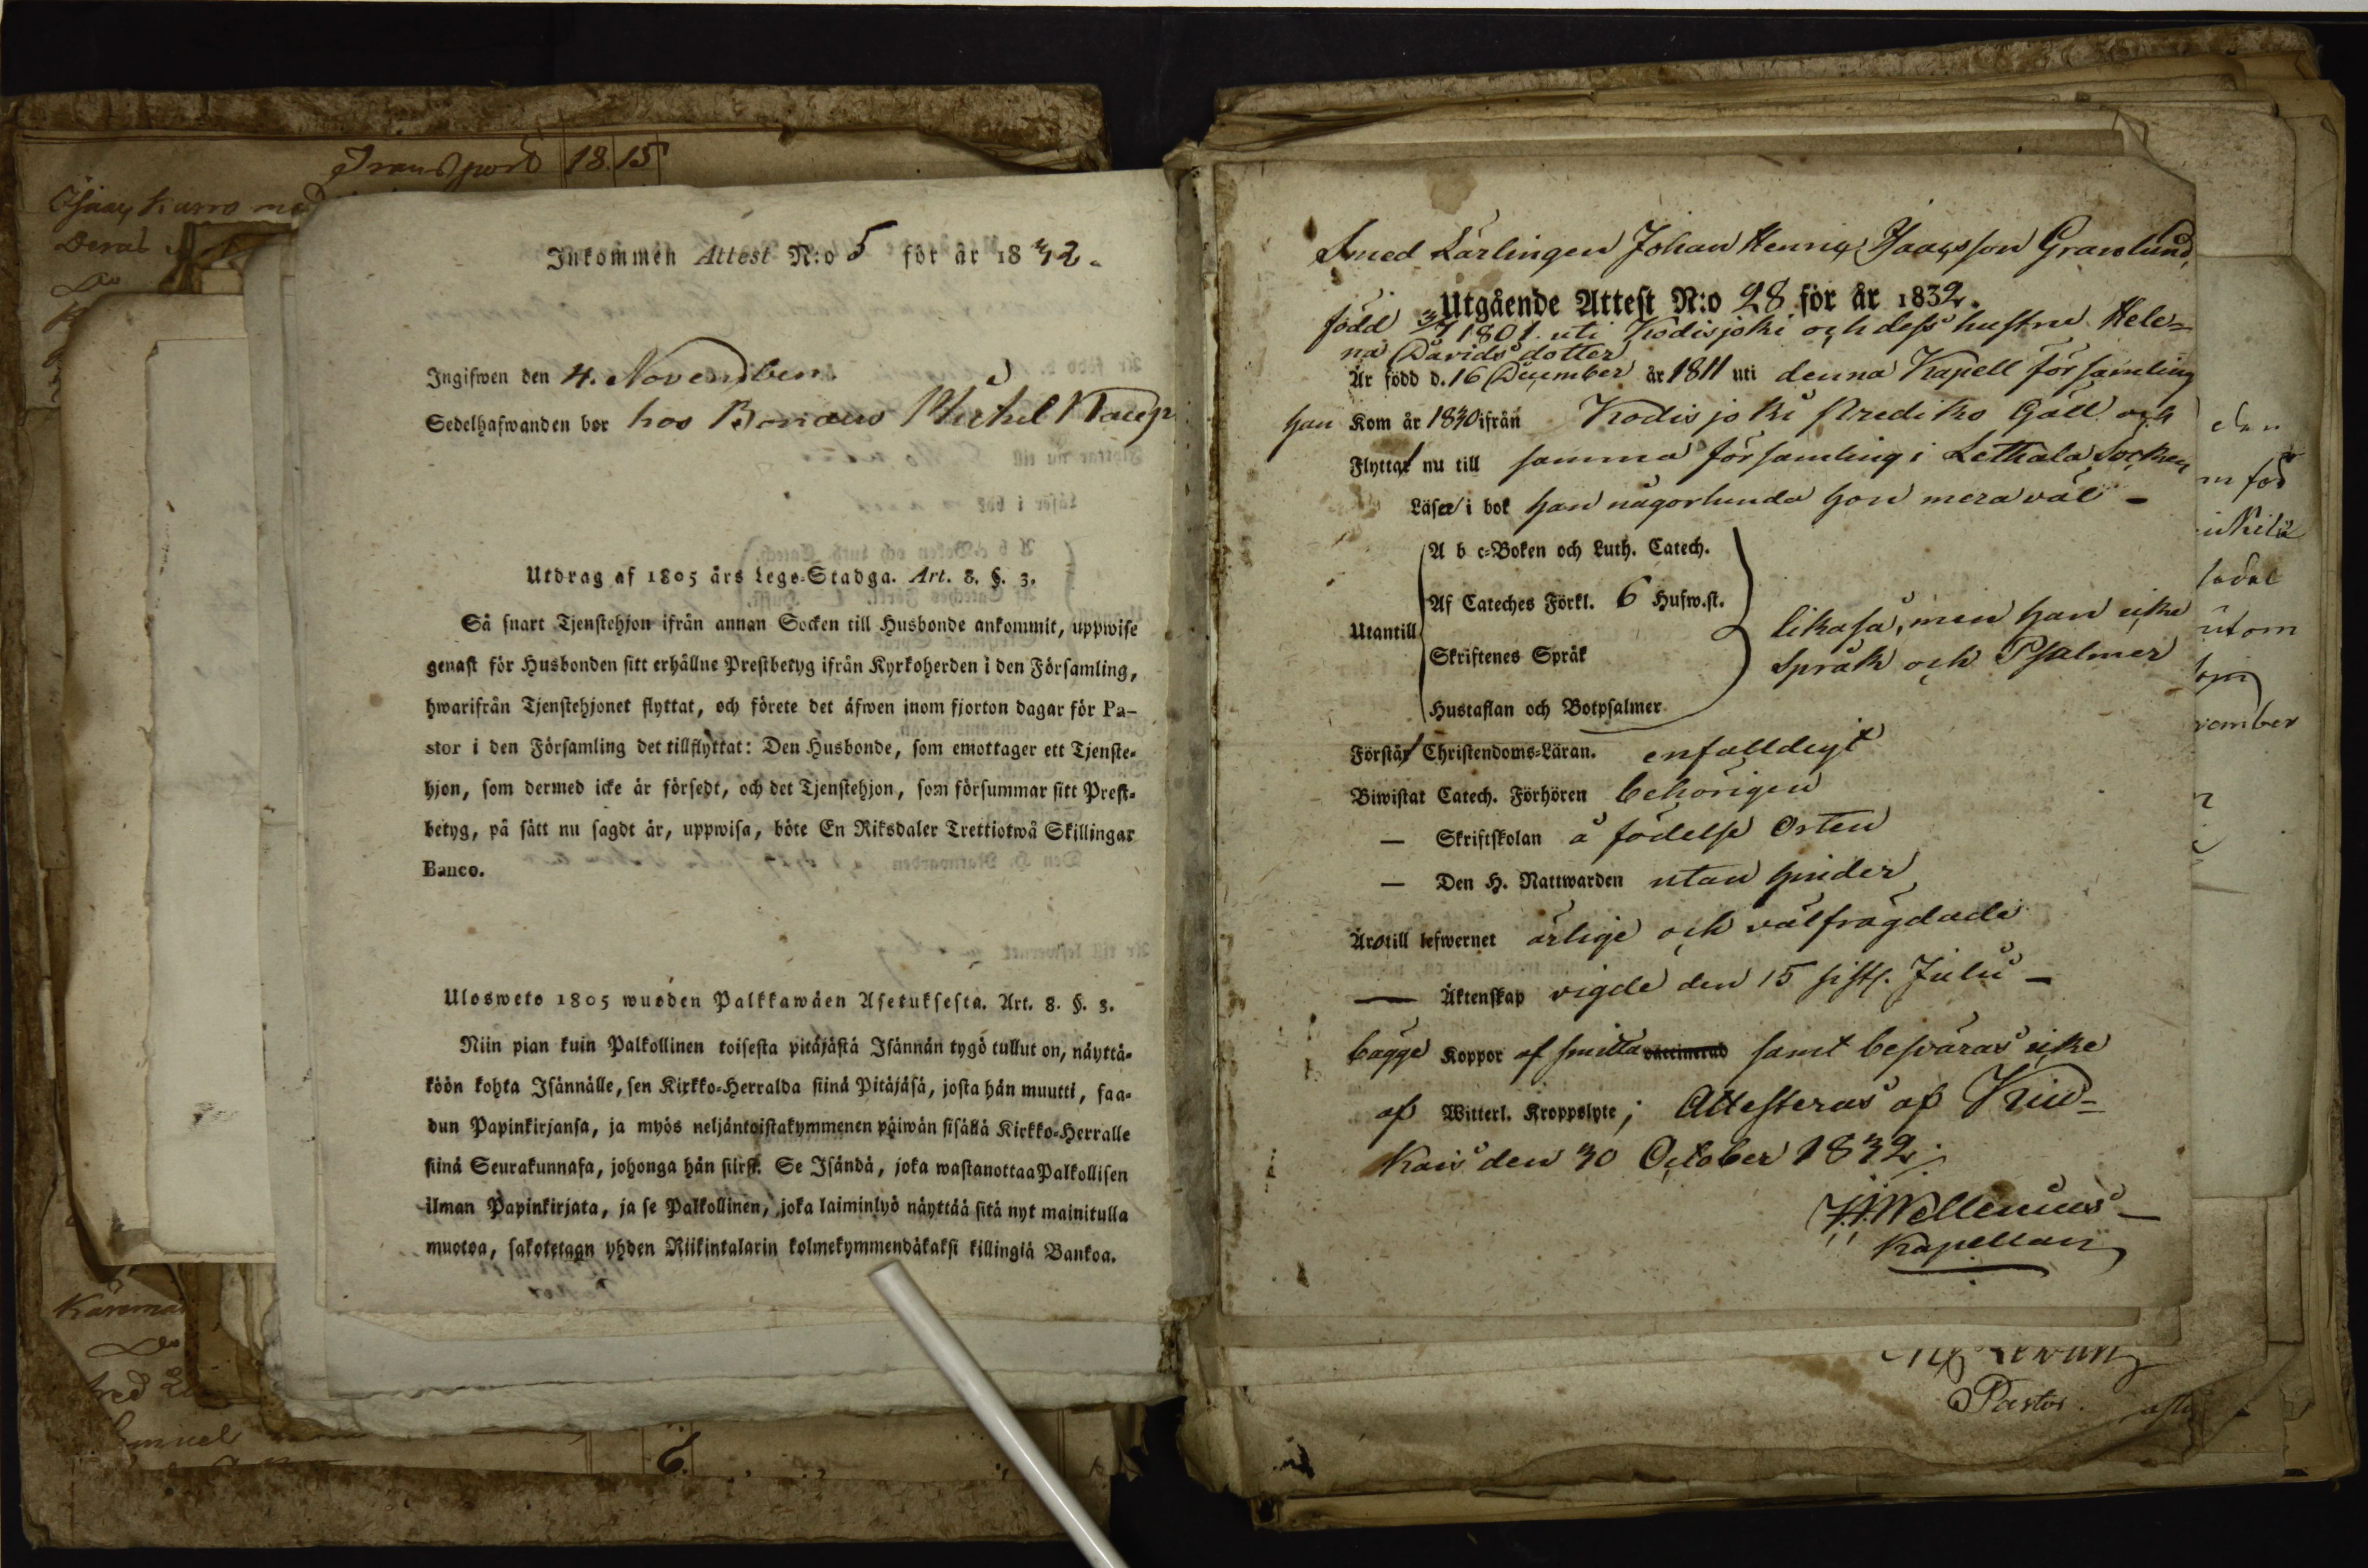 Transport 18.15
Inkommen Attest N:o 5 för år 1832.
Ingifwen den 4. November.
Sedelhafwanden bor hos Michel
Utdrag af 1805 års Lego-Stadga. Art. 8. §. 3.
Så snart Tjenstehjon ifrån annan Socken till Husbonde ankommit, uppwise
genast för Husbonden sitt erhållne Prestbetyg ifrån Kyrkoherden i den Församling,
hwarifrån Tjenstehjonet flyttat, och förete det äfwen inom fjorton dagar för Pa-
stor i den Församling det tillflyttat: Den Husbonde, som emottager ett Tjenste-
hjon, som dermed icke är försedt, och det Tjenstehjon, som försummar sitt Prest-
betyg, på sätt nu sagdt är, uppwisa, böte En Riksdaler Trettiotwå Skillingar
Banco.
Ulosweto 1805 wuoden Palkkawäen Asetuksesta. Art. 8. §. 3.
Niin pian kuin Palkollinen toisesta pitäjästä Isännän tygö tullut on, näyttä-
köön kohta Isännälle, sen Kirkko-Herralda siinä Pitäjäsä, josta hän muutti, saa-
dun Papinkirjansa, ja myös neljäntoistakymmenen päiwän sisällä Kirkko-Herralle
siinä Seurakunnasa, johonga hän siirst. Se Isändä, joka wastanottaa Palkollisen
ilman Papinkirjata, ja se Palkollinen, joka laiminlyö näyttää sitä nyt mainitulla
muotoa, sakotetaan yhden Riikintalarin kolmekymmendäkaksi killingiä Bankoa.
Smed Lärlingen Johan Henric Isaacsson Granlund,
Utgående Attest N:o 28 för år 1832.
född 3/7 1801 uti Kodisjoki och dess hustru Hele-
na Davids dotter
Är född d. 16 December år 1811 uti denna Kapell församling
han Kom år 1830 ifrån Kodisjoki Prediko Gäll och
Flyttat nu till samma församling i Lethala Socken
Läser i bok han någorlunda hon mera väl -
Utantill
A b c-Boken och Luth. Catech.
Af Cateches Förkl. 6 Hufw.st.
Skriftenes Språk
Hustaflan och Botpsalmer
likaså, men han icke
Språk och Psalmer
Förstår Christendoms-Läran. enfalldigt
Biwistat Catech. Förhören behörigen
— Skriftskolan å födelse Orten
— Den H. Nattwarden utan hinder
Äro till lefwernet ärlige och välfrägdade
— Äktenskap vigde den 15 sistl. Julii -
bägge Koppor af smitta vaccinerad samt besväras icke
af Witterl. Kroppslyte; Attesteras af Kiu-
kais den 30 October 1832.
Wellenius
Kapellan
Pastor.
utom
vember
6.